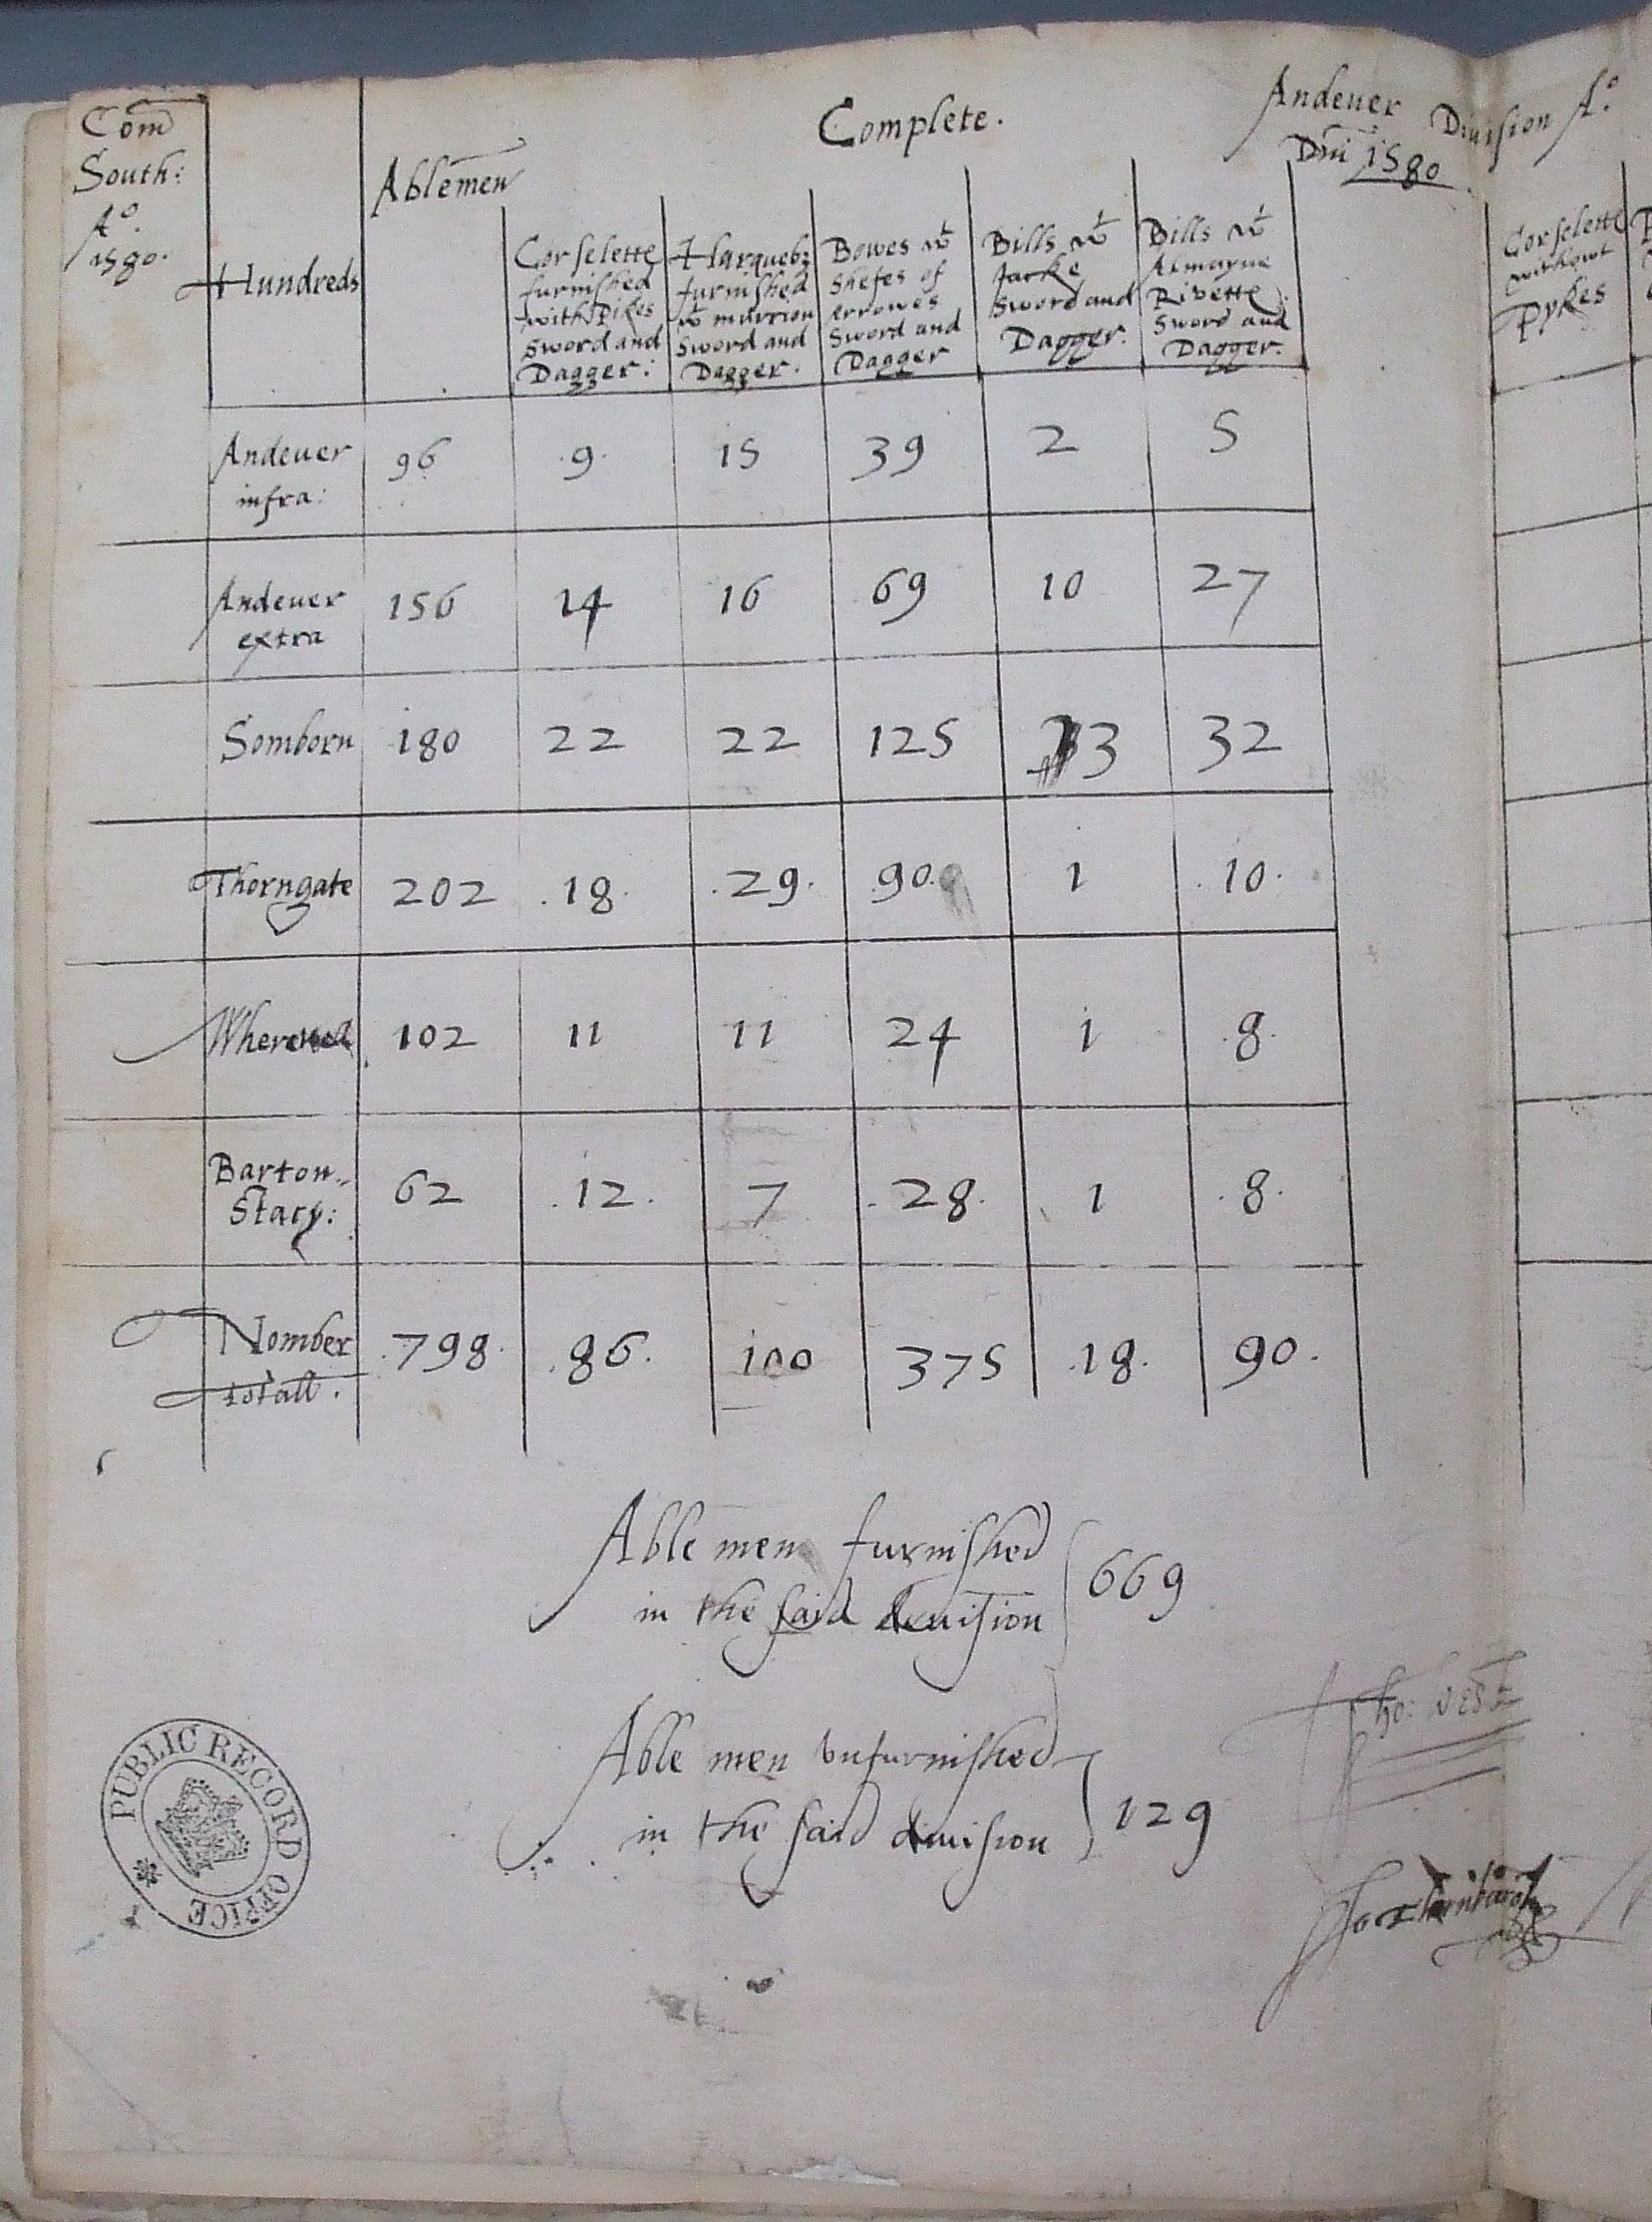 Com
South:
A°.
1580.
Complete.
Andeuer Diuision A°.
Dni 1580
Hundreds
Ablemen
Corselette
furnished
with Pikes
Sword and
Dagger:
Harquebz
furnished
wt murrion
Sword and
Dagger.
Bowes wt
Shefes of
Arrowes
Sword and
Dagger
Bills wt
Jacke
Sword and
Dagger.
Bills wt
Almayne
Rivette
Sword and
Dagger.
Corselette
without
Pykes
Andeuer 96 9 15 39 2 5
infra:
Andeuer 156 14 16 69 10 27
extra
Somborn 180 22 22 125 3 32
Thorngate 202 18 29 90 1 10
102 11 11 24 1 8
Barton 62 12 7 28 1 8
Stacy:
Nomber 798 86 100 375 18 90
totall.
Able men furnished
in the said deuision 669
Able men vnfurnished
in the said diuision 129
Tho: West
PUBLIC RECORD OFFICE